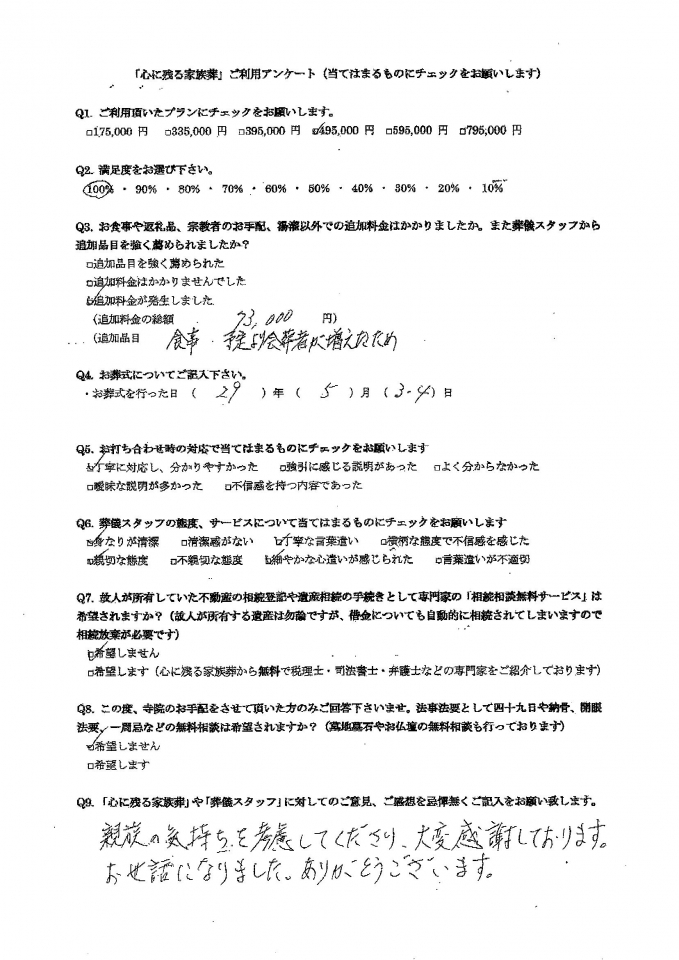 「心に残る家族葬」ご利用アンケート（当てはまるものにチェックをお願いします）
Q1. ご利用頂いたプランにチェックをお願いします。
□175,000 円 □335,000 円 □395,000 円 ☑495,000 円 □595,000 円 □795,000円
Q2. 満足度をお選び下さい。
100% ・ 90% ・ 80% ・ 70% ・ 60% ・ 50% ・ 40% ・ 30% ・ 20% ・ 10%
Q3. お食事や返礼品、宗教者のお手配、湯灌以外での追加料金はかかりましたか。また葬儀スタッフから
追加品目を強く薦められましたか？
□追加品目を強く薦められた
□追加料金はかかりませんでした
☑追加料金が発生しました
（追加料金の総額 73,000 円）
（追加品目 食事・予定より会葬者が増えたため
Q4. お葬式についてご記入下さい。
・お葬式を行った日（ 29 ）年（ 5 ）月（ 3・4 ）日
Q5. お打ち合わせ時の対応で当てはまるものにチェックをお願いします
☑丁寧に対応し、分かりやすかった □強引に感じる説明があった □よく分からなかった
□曖昧な説明が多かった □不信感を持つ内容であった
Q6. 葬儀スタッフの態度、サービスについて当てはまるものにチェックをお願いします
☑身なりが清潔 □清潔感がない ☑丁寧な言葉遣い □横柄な態度で不信感を感じた
☑親切な態度 □不親切な態度 ☑細やかな心遣いが感じられた □言葉遣いが不適切
Q7. 故人が所有していた不動産の相続登記や遺産相続の手続きとして専門家の「相続相談無料サービス」は
希望されますか？（故人が所有する遺産は勿論ですが、借金についても自動的に相続されてしまいますので
相続放棄が必要です）
☑希望しません
□希望します（心に残る家族葬から無料で税理士・司法書士・弁護士などの専門家をご紹介しております）
Q8. この度、寺院のお手配をさせて頂いた方のみご回答下さいませ。法事法要として四十九日や納骨、開眼
法要、一周忌などの無料相談は希望されますか？（墓地墓石やお仏壇の無料相談も行っております）
☑希望しません
□希望します
Q9. 「心に残る家族葬」や「葬儀スタッフ」に対してのご意見、ご感想を忌憚無くご記入をお願い致します。
親族の気持ちを考慮してくださり、大変感謝しております。
お世話になりました。ありがとうございます。